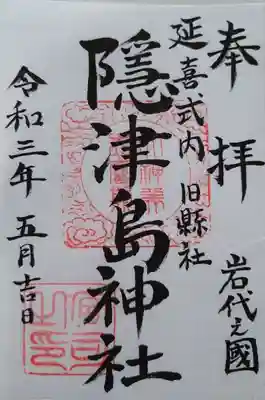 奉拝
岩代之國
延喜式内 旧縣社
隠津島神社
令和三年 五月吉日